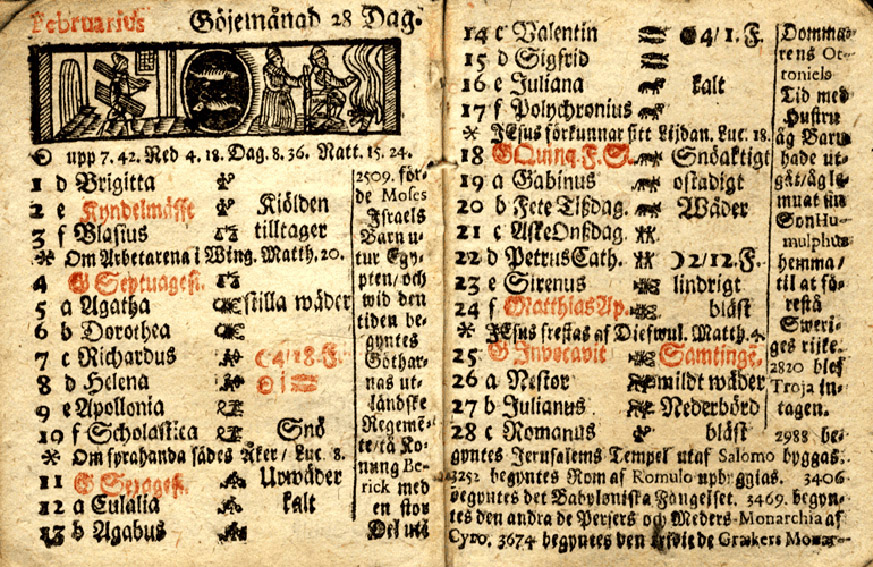 Februarius Göjemånad 28 Dag.
upp 7. 42. Ned 4. 18. Dag. 8. 36. Natt. 15. 24.
1 d Brigitta
2 e Kyndelmässe Kiölden
3 f Blasius tilltager
Om Arbetarena i Wing. Matth. 20.
4 G Septuages.
5 a Agatha stilla wäder
6 b Dorothea
7 c Richardus 4/18. F.
8 d Helena
9 e Apollonia
10 f Scholastica Snö
Om syrahanda sädes Åker/ Luc. 8.
11 G Sexages. Urwäder
12 a Eulalia kalt
13 b Agabus
2509. för-
de Moses
Israels
Barn u-
tur Egy-
pten/ och
wid den
tiden be-
gyntes
Göthar-
nas ut-
ländske
Regemē-
te/ tå Ko-
nung Be-
rick med
en stor
Del utå
14 c Valentin 4/1. F.
15 d Sigfrid
16 e Juliana kalt
17 f Polychronius
JEsus förkunnar sitt Lijdan. Luc. 18.
18 G Quinq. F. S. Snöaktigt
19 a Gabinus ostadigt
20 b Fete Tißdag. Wäder
21 c AskeOnßdag.
22 d Petrus Cath. 2/12. F.
23 e Sirenus lindrigt
24 f Matthias Ap. bläst
JEsus frestas af Diefwul. Matth. 4.
25 G Invocavit Samtingē.
26 a Nestor mildt wäder
27 b Julianus Nederbörd
28 c Romanus bläst
Domma-
rens Ot-
toniels
Tid med
Hustru
åg Barn
hade ut-
gåt/ågle
muat sin
Son Hu-
mulphus
hemma/
til at fö-
restå
Sweri-
ges rijke.
2820 blef
Troja in-
tagen.
2988 be-
gyntes Jerusalems Tempel utaf Salomo byggas.
3252 begyntes Rom af Romulo upbyggias. 3406
begyntes det Babyloniska Fångelset. 3469. begyn-
tes den andra de Persers och Meders Monarchia af
Cyro. 3674 begyntes den tredie de Grækers Monar-